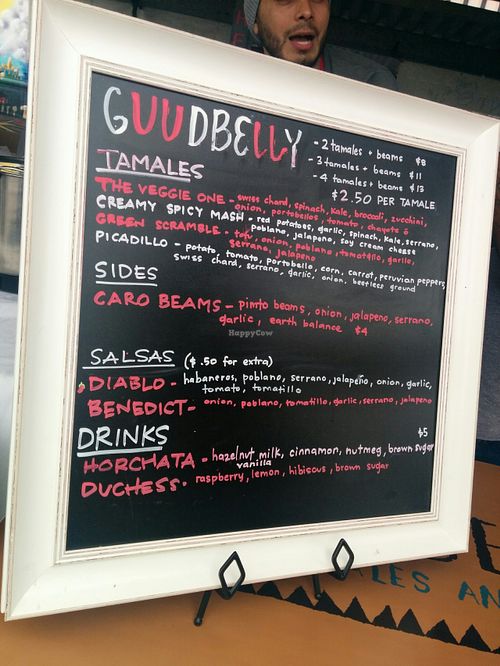 GUUDBELLY
- 2 tamales + beams $8
- 3 tamales + beams $11
- 4 tamales + beams $13
$2.50 PER TAMALE
TAMALES
THE VEGGIE ONE - swiss chard, spinach, kale, broccoli, zucchini,
onion, portobellos, tomato, chayote
CREAMY SPICY MASH - red potatoes, garlic, spinach, kale, serrano,
poblano, jalapeno, soy cream cheese
GREEN SCRAMBLE - tofu, onion, poblano, tomatillo, garlic,
serrano, jalapeno
PICADILLO - potato, tomato, portobello, corn, carrot, peruvian peppers,
swiss chard, serrano, garlic, onion, beefless ground
SIDES
CARO BEAMS - pinto beams, onion, jalapeno, serrano,
garlic, earth balance $4
HappyCow
SALSAS ($.50 for extra)
DIABLO - habaneros, poblano, serrano, jalapeño, onion, garlic,
tomato, tomatillo
BENEDICT - onion, poblano, tomatillo, garlic, serrano, jalapeno
DRINKS $5
HORCHATA - hazelnut milk, cinnamon, nutmeg, brown sugar
vanilla
DUCHESS - raspberry, lemon, hibiscus, brown sugar
LES AN